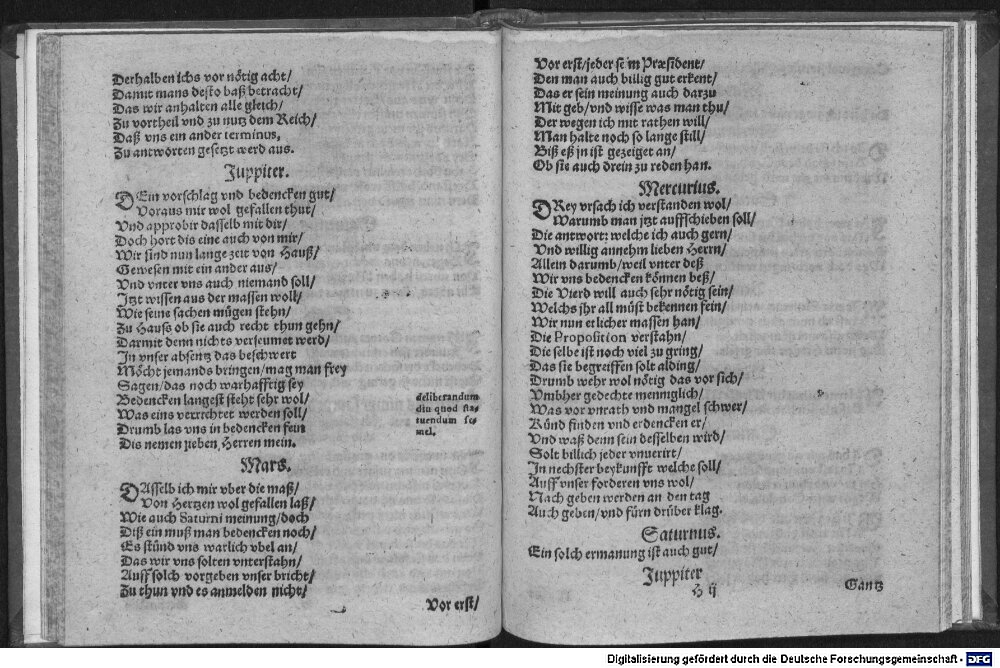 Derhalben ichs vor nötig acht/
Damit mans desto baß betracht/
Das wir anhalten alle gleich/
Zu vortheil vnd zu nutz dem Reich/
Daß vns ein ander terminus,
Zu antworten gesetzt werd aus.
Juppiter.
DEin vorschlag vnd bedencken gut/
Voraus mir wol gefallen thut/
Vnd approbir dasselb mit dir/
Doch hört dis eine auch von mir/
Wir sind nun lange zeit von Hauß/
Gewesen mit ein ander aus/
Vnd vnter vns auch niemand soll/
Jtzt wissen aus der massen woll/
Wie seine sachen mügen stehn/
Zu Hauß ob sie auch recht thun gehn/
Darmit denn nichts verseumet werd/
Jn vnser absentz das beschwert
Möcht jemands bringen/mag man frey
Sagen/das noch warhafftig sey
Bedencken langest steht sehr wol/
Was eins verrichtet werden soll/
Drumb las vns in bedencken fein
Dis nemen lieben Herren mein.
deliberandum
diu quod sta-
tuendum se-
mel.
Mars.
DAsselb ich mir vber die maß/
Von Hertzen wol gefallen laß/
Wie auch Saturni meinung/doch
Diß ein muß man bedencken noch/
Es stünd vns warlich vbel an/
Das wir vns solten vnterstahn/
Auff solch vorgeben vnser bricht/
Zu thun vnd es anmelden nicht/
Vor erst/
Vor erst/jeder Præsident/
Den man auch billig gut erkent/
Das er sein meinung auch darzu
Mit geb/vnd wisse was man thu/
Der wegen ich mit rathen will/
Man halte noch so lange still/
Biß eß jn ist gezeiget an/
Ob sie auch drein zu reden han.
Mercurius.
DRey vrsach ich verstanden wol/
Warumb man jtzt auffschieben soll/
Die antwort: welche ich auch gern/
Vnd willig annehm lieben Herrn/
Allein darumb/weil vnter deß
Wir vns bedencken können beß/
Die Vierd will auch sehr nötig sein/
Welchs jhr all müst bekennen fein/
Wir nun etlicher massen han/
Die Proposition verstahn/
Die selbe ist noch viel zu gring/
Das sie begreiffen solt alding/
Drumb wehr wol nötig das vor sich/
Vmbher gedechte menniglich/
Was vor vnrath vnd mangel schwer/
Künd finden vnd erdencken er/
Vnd waß denn sein desselben wird/
Solt billich jeder vnuerirt/
Jn nechster beykunfft welche soll/
Auff vnser forderen vns wol/
Nach geben werden an den tag
Auch geben/vnd fürn drüber klag.
Saturnus.
Ein solch ermanung ist auch gut/
Juppiter
H ij
Gantz
Digitalisierung gefördert durch die Deutsche Forschungsgemeinschaft - DFG